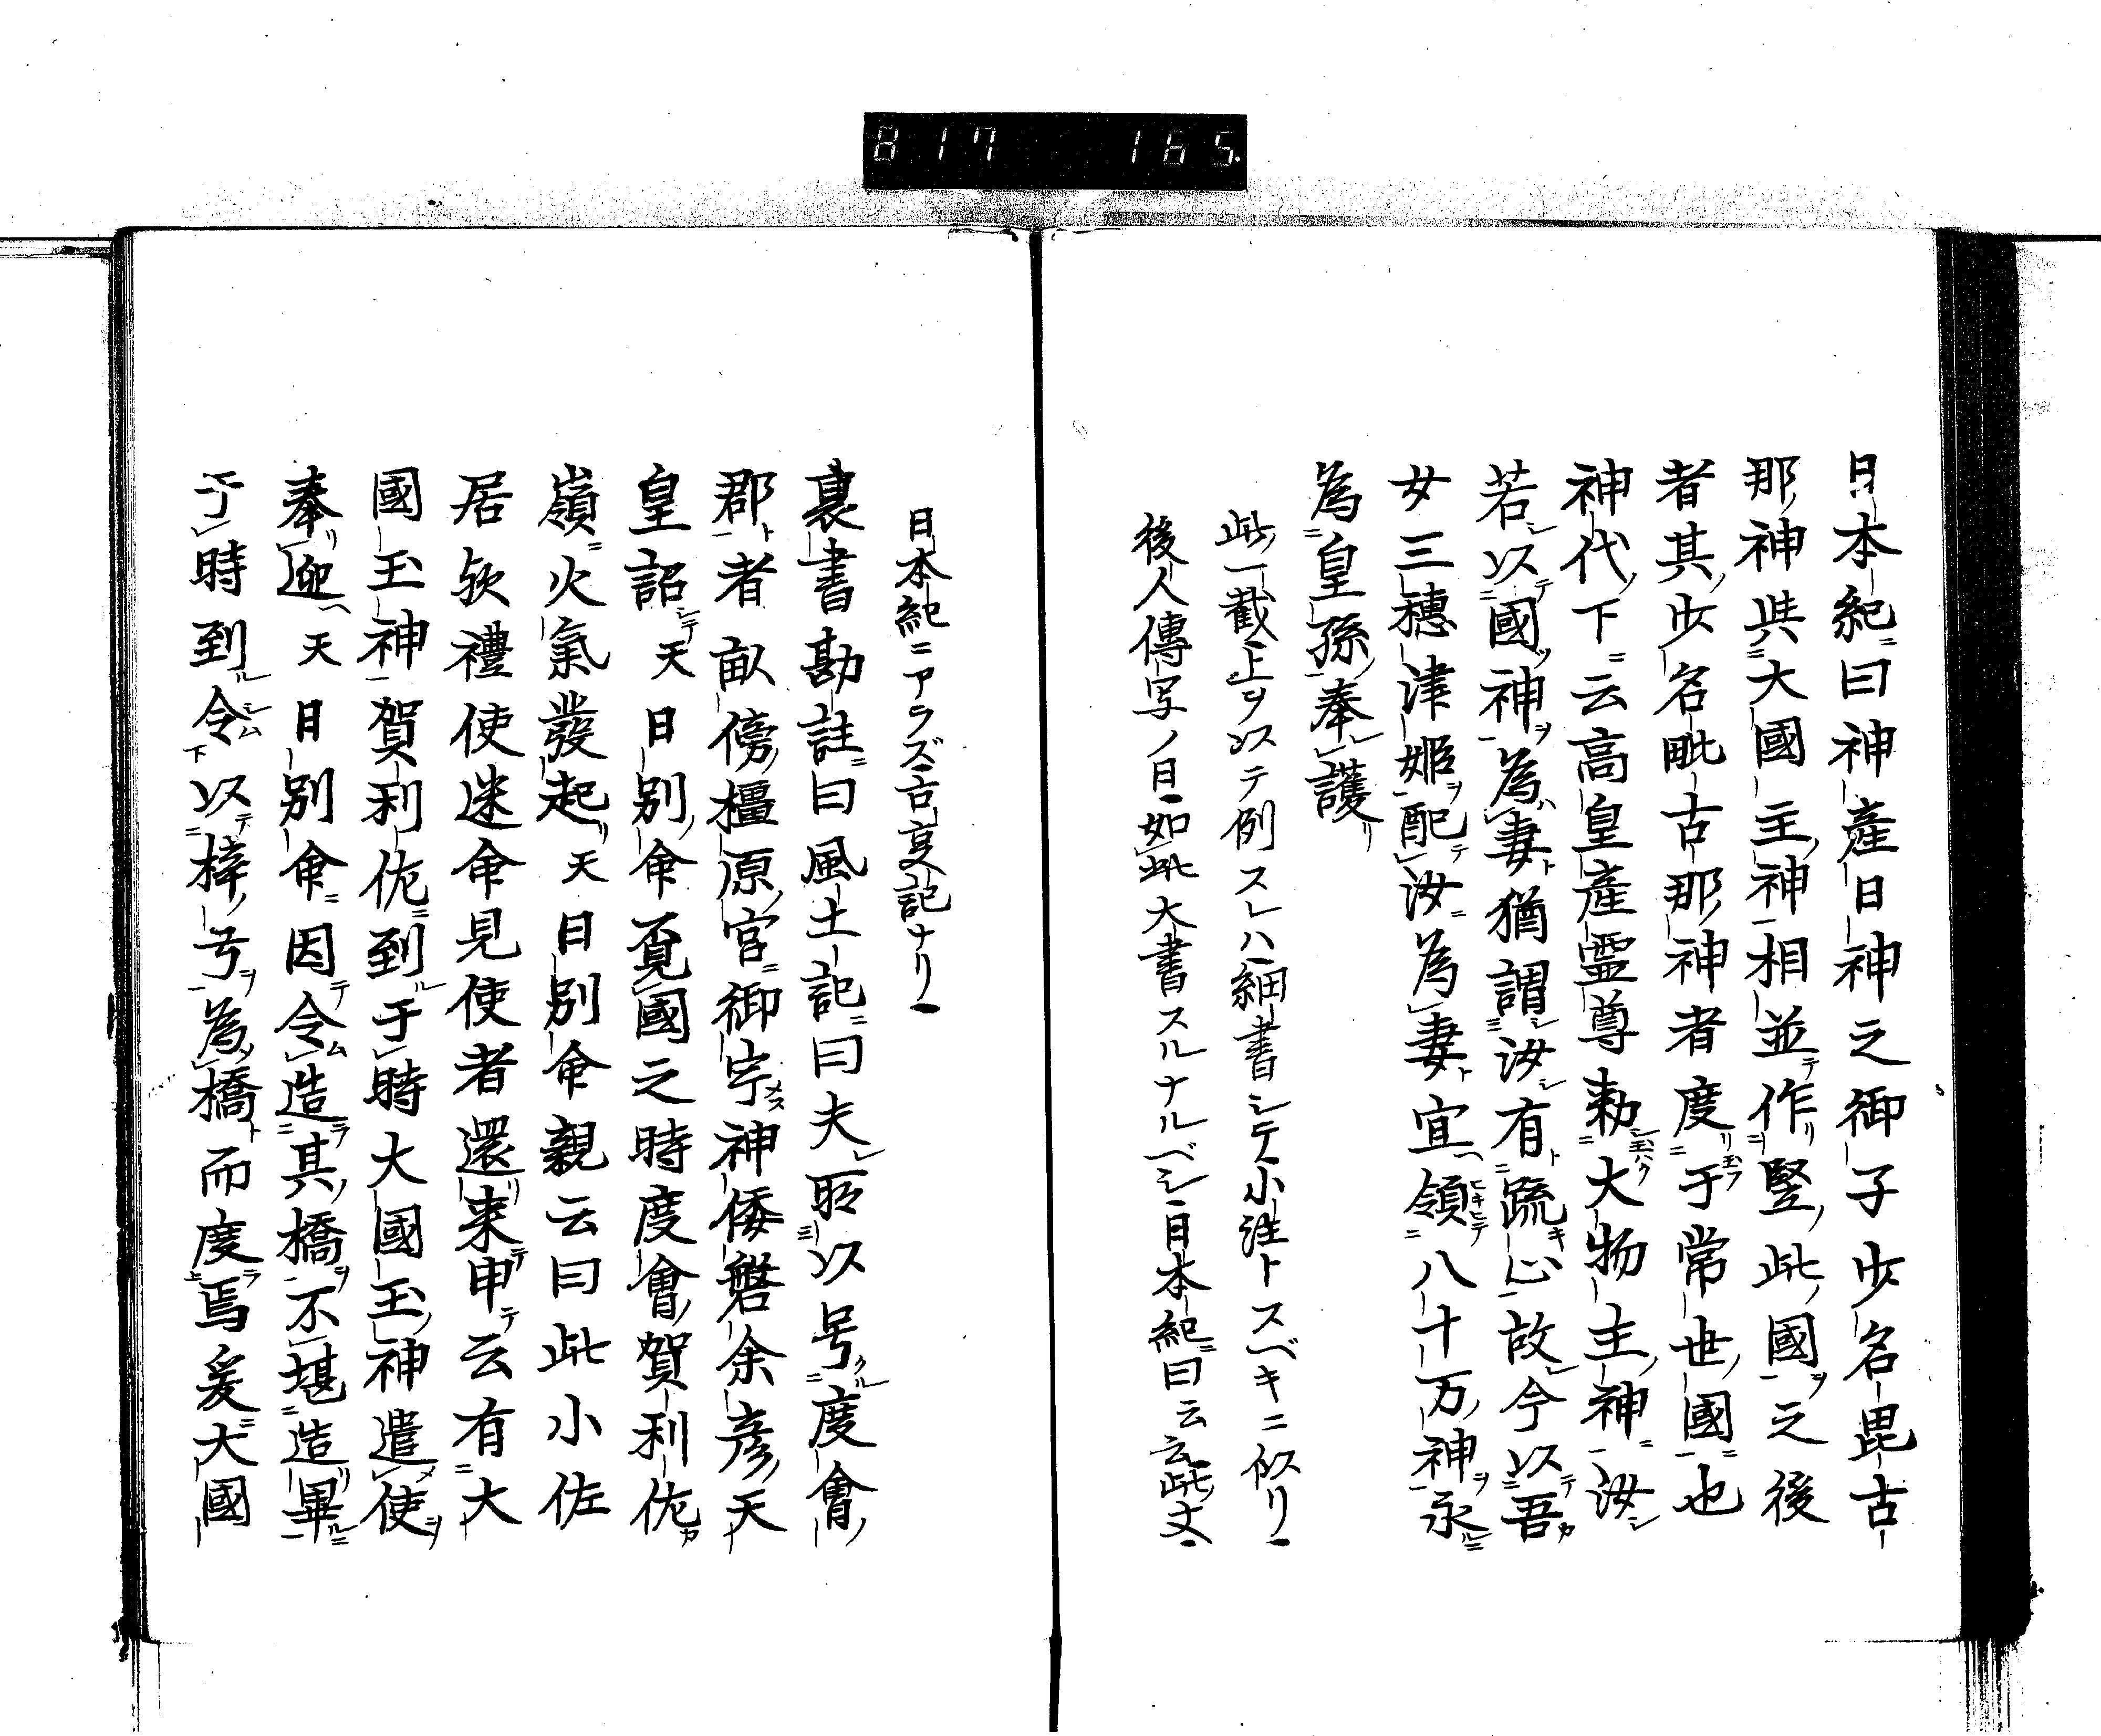 817 165.
日本紀曰神產日神之御子少名毘古
那神與大國主神相並作堅此國之後
者其少名毗古那神者度于常世國也
神代下云高皇產靈尊勅大物主神汝
若以國神為妻猶謂汝有疏心故今以吾
女三穗津姬配汝為妻宜領八十万神永
為皇孫奉護
此一截上ヲ以テ例スレハ細書シテ小註トスベキニ似リ
後人傳写ノ日如此大書スルナルベシ日本紀曰云云此文
日本紀ニアラズ古事記ナリ
裏書勘註曰風土記曰夫所以号度會
郡者畝傍橿原宮御宇神倭磐余彦天
皇詔天日別命覓國之時度會賀利佐
嶺火氣發起天日別命親云曰此小佐
居欤禮使遣命見使者還来申云有大
國玉神賀利佐到于時大國玉神遣使
奉迎天日別命因令造其橋不堪造畢
于時到令以梓弓為橋而度焉爰大國